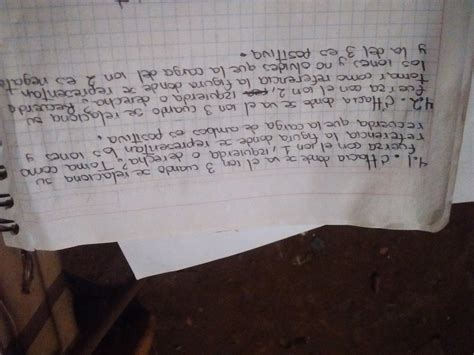 4.1. ¿Hacia donde se va el ion 3 cuando se relaciona su
fuerza con el ion 1, izquierda o derecha? Toma como
referencia la figura donde se representan los iones y
recuerda que la carga de ambos es positiva.
4.2. ¿Hacia donde se va el ion 3 cuando se relaciona su
fuerza con el ion 2, izquierda o derecha? Recuerda
toma como referencia la figura donde se representan
los iones y no olvides que la carga del ion 2 es negat
y la del 3 es positiva.